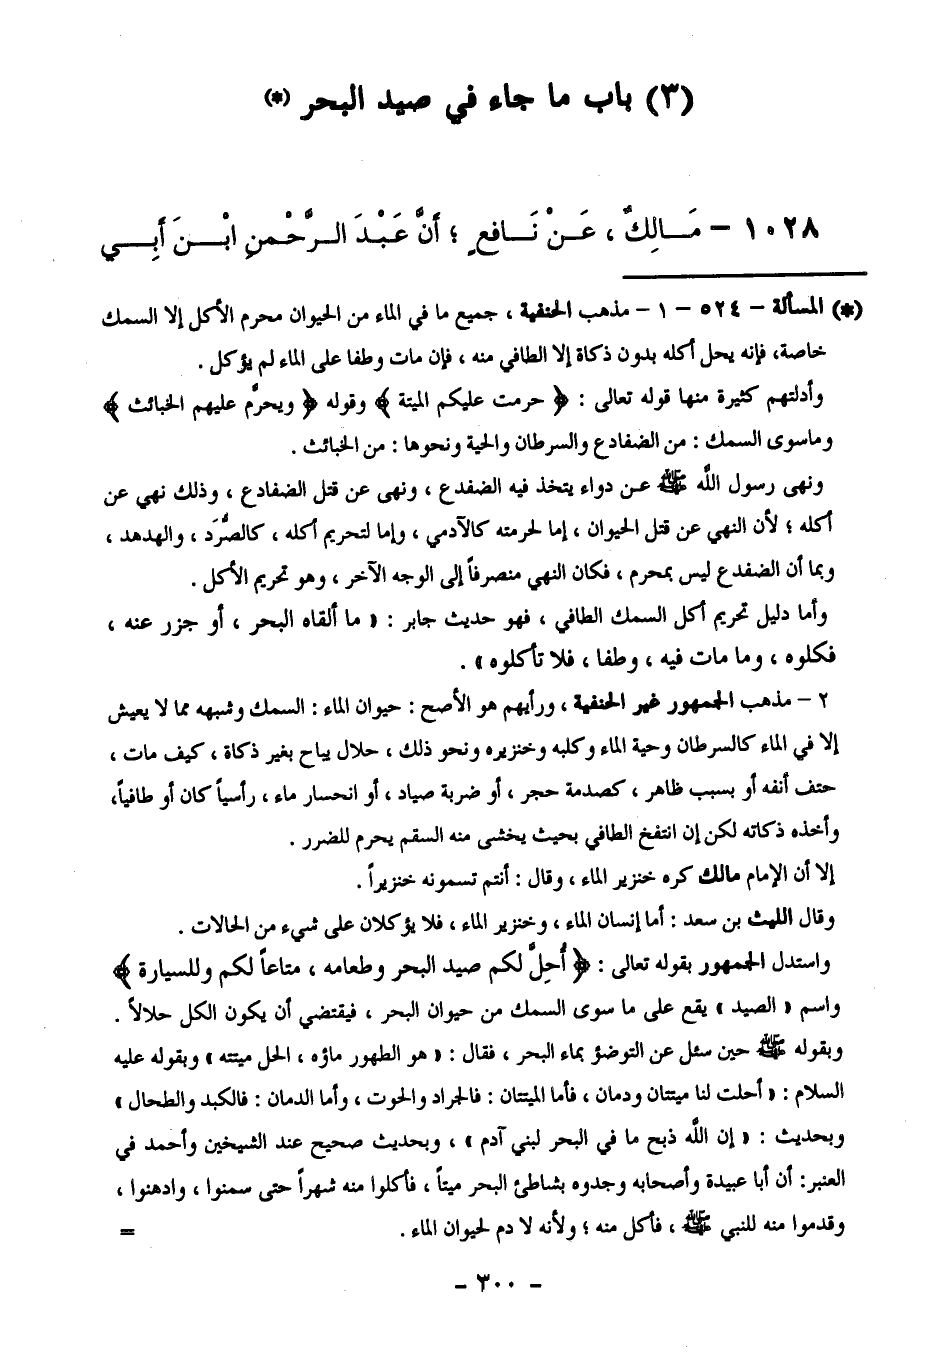 (٣) باب ما جاء في صيد البحر (*)
١٠٢٨ – مَالِكٌ ، عَنْ نَافِعٍ ؛ أَنَّ عَبْدَ الرَّحْمنِ ابْنَ أَبِي
(*) المسألة – ٥٢٤ – ١ – مذهب الحنفية ، جميع ما في الماء من الحيوان محرم الأكل إلا السمك
خاصة، فإنه يحل أكله بدون ذكاة إلا الطافي منه ، فإن مات وطفا على الماء لم يؤكل .
وأدلتهم كثيرة منها قوله تعالى : ﴿ حرمت عليكم الميتة ﴾ وقوله ﴿ ويحرَّم عليهم الخبائث ﴾
وماسوى السمك : من الضفادع والسرطان والحية ونحوها : من الخبائث .
ونهى رسول اللَّه ﷺ عن دواء يتخذ فيه الضفدع ، ونهى عن قتل الضفادع ، وذلك نهي عن
أكله ؛ لأن النهي عن قتل الحيوان ، إما لحرمته كالآدمي ، وإما لتحريم أكله ، كالصُّرَد ، والهدهد ،
وبما أن الضفدع ليس بمحرم ، فكان النهي منصرفاً إلى الوجه الآخر ، وهو تحريم الأكل .
وأما دليل تحريم أكل السمك الطافي ، فهو حديث جابر : « ما ألقاه البحر ، أو جزر عنه ،
فكلوه ، وما مات فيه ، وطفا ، فلا تأكلوه » .
٢ – مذهب الجمهور غير الحنفية ، ورأيهم هو الأصح : حيوان الماء : السمك وشبهه مما لا يعيش
إلا في الماء كالسرطان وحية الماء وكلبه وخنزيره ونحو ذلك ، حلال يباح بغير ذكاة ، كيف مات ،
حتف أنفه أو بسبب ظاهر ، كصدمة حجر ، أو ضربة صياد ، أو انحسار ماء ، رأسياً كان أو طافياً،
وأخذه ذكاته لكن إن انتفخ الطافي بحيث يخشى منه السقم يحرم للضرر .
إلا أن الإمام مالك كره خنزير الماء ، وقال : أنتم تسمونه خنزيراً .
وقال الليث بن سعد : أما إنسان الماء ، وخنزير الماء ، فلا يؤكلان على شيء من الحالات .
واستدل الجمهور بقوله تعالى : ﴿ أُحِلَّ لكم صيد البحر وطعامه ، متاعاً لكم وللسيارة ﴾
واسم « الصيد » يقع على ما سوى السمك من حيوان البحر ، فيقتضي أن يكون الكل حلالاً .
وبقوله ﷺ حين سئل عن التوضؤ بماء البحر ، فقال : « هو الطهور ماؤه ، الحل ميتته » وبقوله عليه
السلام : « أحلت لنا ميتتان ودمان ، فأما الميتتان : فالجراد والحوت ، وأما الدمان : فالكبد والطحال »
وبحديث : « إن اللَّه ذبح ما في البحر لبني آدم » ، وبحديث صحيح عند الشيخين وأحمد في
العنبر: أن أبا عبيدة وأصحابه وجدوه بشاطئ البحر ميتاً ، فأكلوا منه شهراً حتى سمنوا ، وادهنوا ،
وقدموا منه للنبي ﷺ ، فأكل منه ؛ ولأنه لا دم لحيوان الماء . =
– ٣٠٠ –